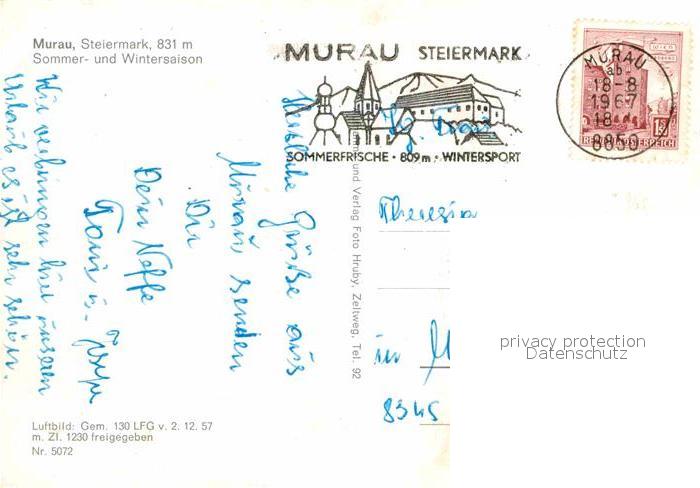 Murau, Steiermark, 831 m
Sommer- und Wintersaison
MURAU STEIERMARK
SOMMERFRISCHE · 809 m · WINTERSPORT
MURAU
ab
18-8
1967
18
8850
REPUBLIK ÖSTERREICH
Herzliche Grüße aus
Murau, senden
Dir
Dein Neffe
Toni u.
Wir verbringen hier unseren
Urlaub es ist sehr schön.
und Verlag Foto Hruby, Zeltweg, Tel. 92
Theresia
in
8345
privacy protection
Datenschutz
Luftbild: Gem. 130 LFG v. 2. 12. 57
m. Zl. 1230 freigegeben
Nr. 5072